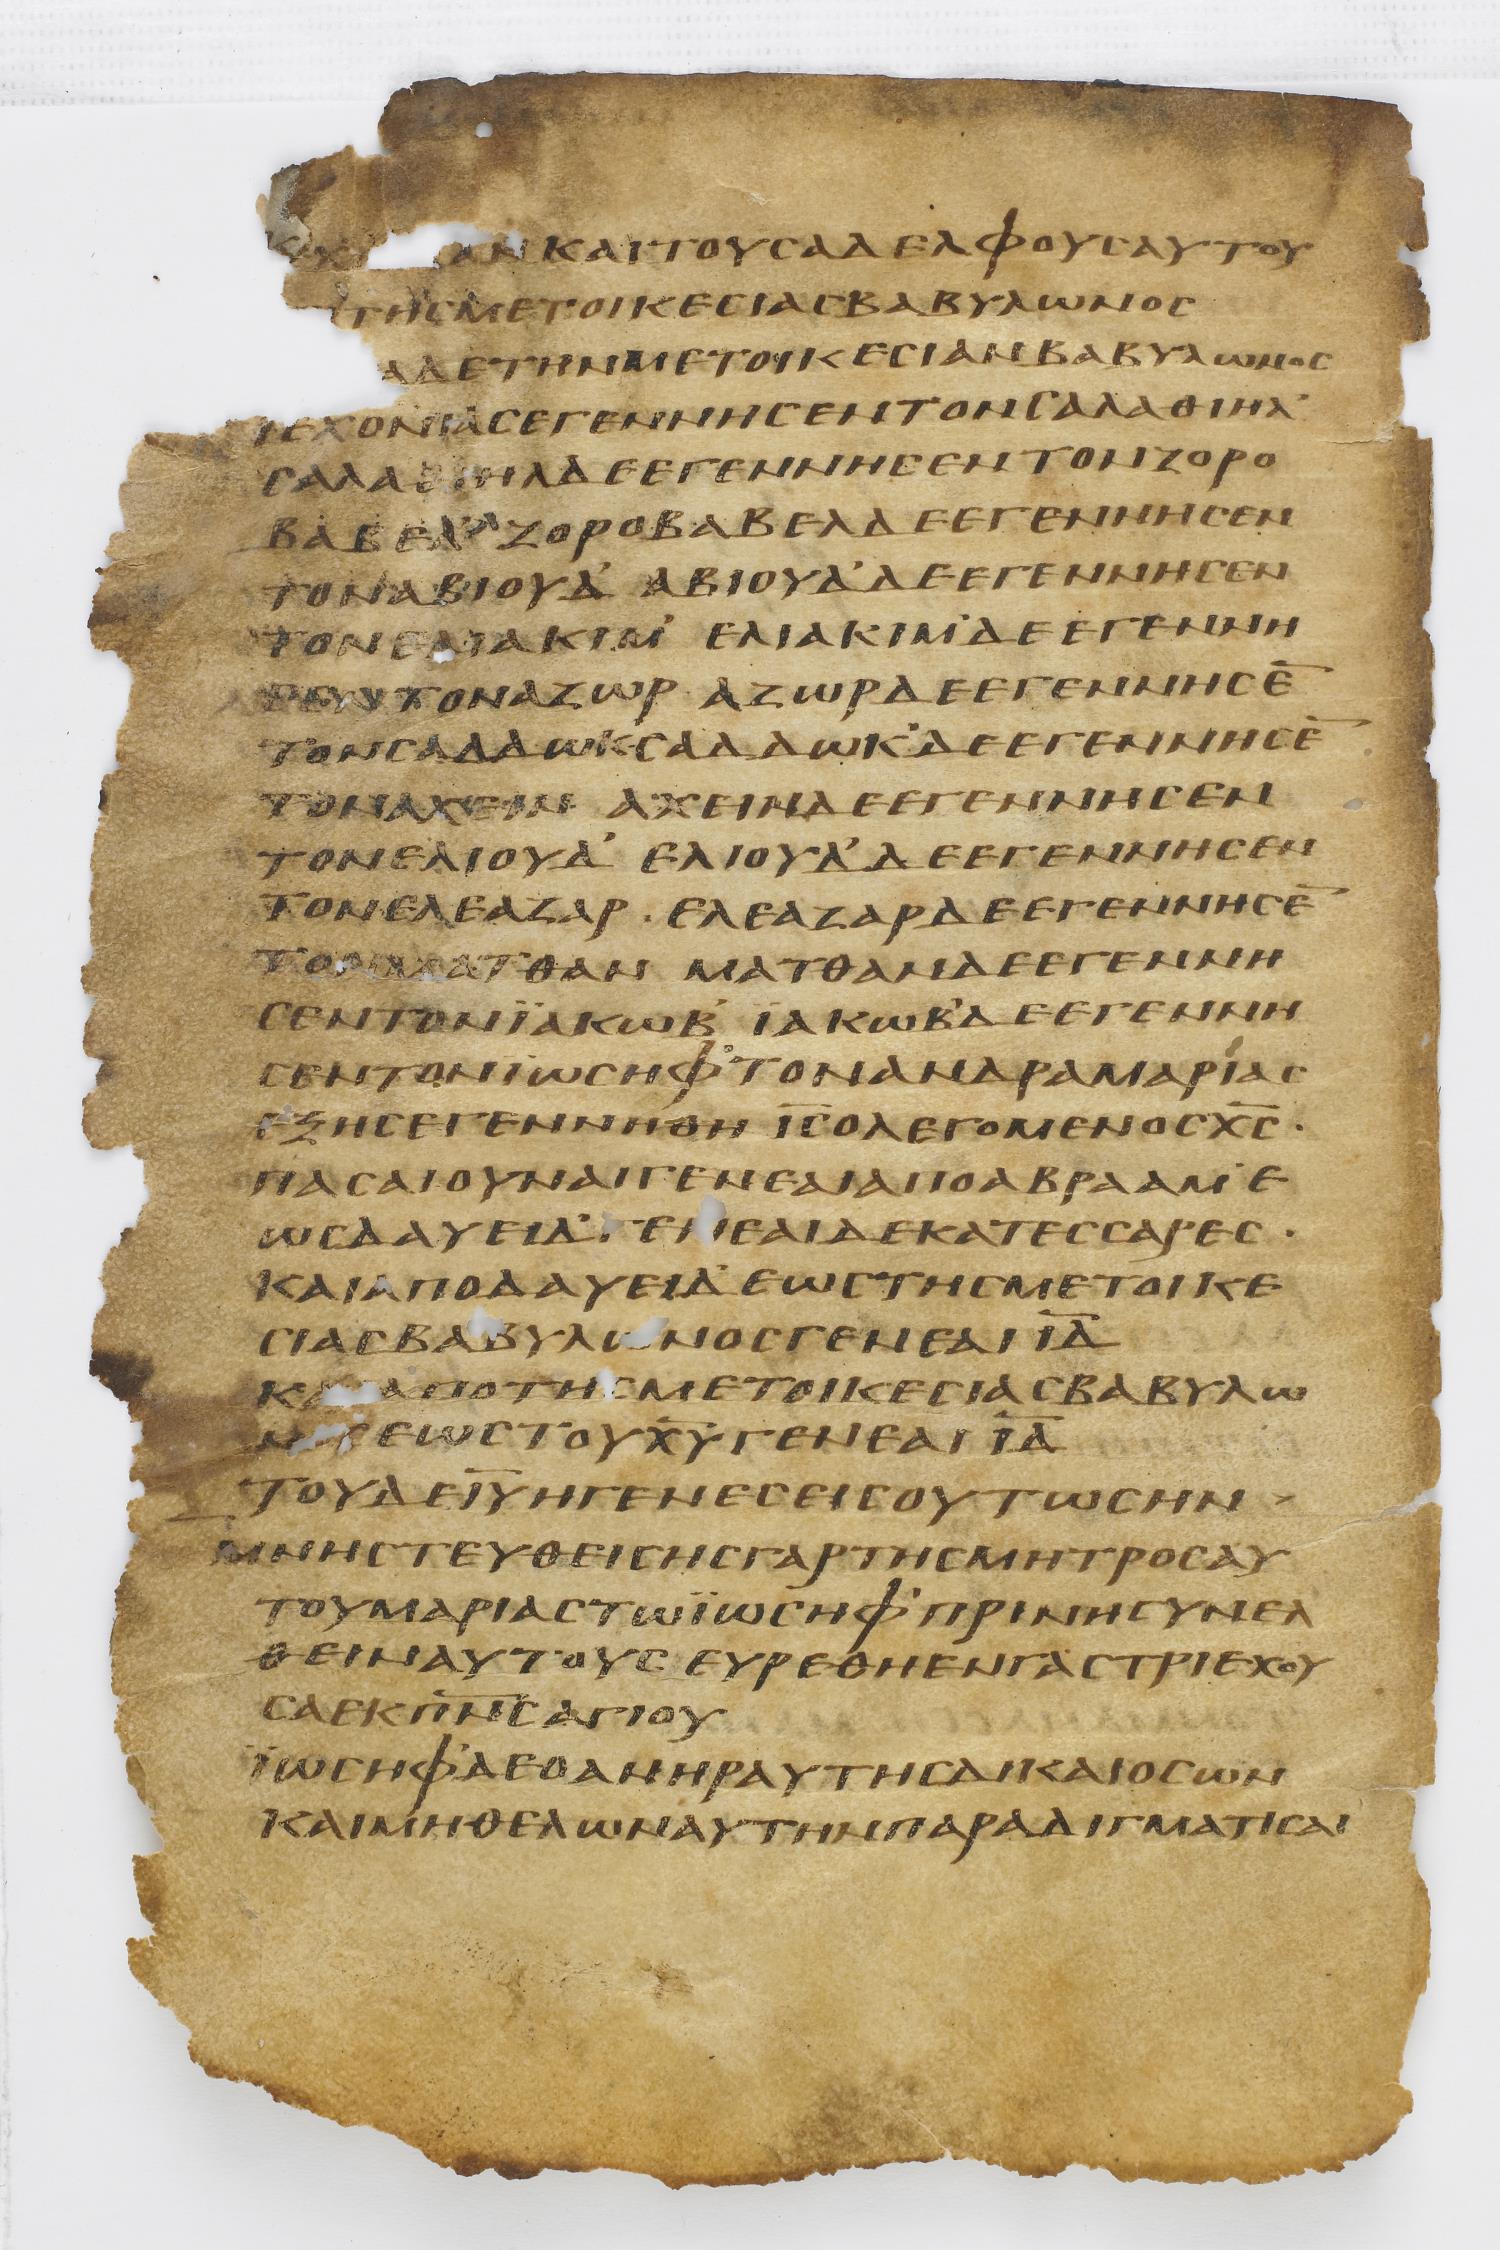 ΑΝΚΑΙΤΟΥСΑΔΕΛΦΟΥСΑΥΤΟΥ
ΤΗСΜΕΤΟΙΚΕСΙΑСΒΑΒΥΛΩΝΟС
ΑΔΕΤΗΝΜΕΤΟΙΚΕСΙΑΝΒΑΒΥΛΩΝΟС
ΙΕΧΟΝΙΑСΕΓΕΝΝΗСΕΝΤΟΝСΑΛΑΘΙΗΛ’
СΑΛΑΘΙΗΛΔΕΕΓΕΝΝΗСΕΝΤΟΝΖΟΡΟ
ΒΑΒΕΛ’ ΖΟΡΟΒΑΒΕΛΔΕΕΓΕΝΝΗСΕΝ
ΤΟΝΑΒΙΟΥΔ’ ΑΒΙΟΥΔ’ΔΕΕΓΕΝΝΗСΕΝ
ΤΟΝΕΛΙΑΚΙΜ’ ΕΛΙΑΚΙΜ’ΔΕΕΓΕΝΝΗ
СΕΝΤΟΝΑΖΩΡ · ΑΖΩΡΔΕΕΓΕΝΝΗСΕ̅
ΤΟΝСΑΔΔΩΚ’СΑΔΔΩΚ’ΔΕΕΓΕΝΝΗСΕ̅
ΤΟΝΑΧΕΙΝ ΑΧΕΙΝΔΕΕΓΕΝΝΗСΕΝ
ΤΟΝΕΛΙΟΥΔ’ ΕΛΙΟΥΔ’ΔΕΕΓΕΝΝΗСΕΝ
ΤΟΝΕΛΕΑΖΑΡ · ΕΛΕΑΖΑΡΔΕΕΓΕΝΝΗСΕ̅
ΤΟΝΜΑΤΘΑΝ ΜΑΤΘΑΝΔΕΕΓΕΝΝΗ
СΕΝΤΟΝΪΑΚΩΒ’ ΪΑΚΩΒ’ΔΕΕΓΕΝΝΗ
СΕΝΤΟΝΪΩСΗΦ’ΤΟΝΑΝΔΡΑΜΑΡΙΑС
ΕΞΗСΕΓΕΝΝΗΘΗ Ι̅С̅ΟΛΕΓΟΜΕΝΟСΧ̅С̅ ·
ΠΑСΑΙΟΥΝΑΙΓΕΝΕΑΙΑΠΟΑΒΡΑΑΜ’Ε
ΩСΔΑΥΕΙΔ’ ΓΕΝΕΑΙΔΕΚΑΤΕССΑΡΕС ·
ΚΑΙΑΠΟΔΑΥΕΙΔ’ ΕΩСΤΗСΜΕΤΟΙΚΕ
СΙΑСΒΑΒΥΛΩΝΟСΓΕΝΕΑΙ Ι̅Δ̅
ΚΑΙΑΠΟΤΗСΜΕΤΟΙΚΕСΙΑСΒΑΒΥΛΩ
ΝΟСΕΩСΤΟΥΧ̅Υ̅ΓΕΝΕΑΙ Ι̅Δ̅
ΤΟΥΔΕΙ̅Υ̅ΗΓΕΝΕСΕΙСΟΥΤΩСΗΝ
ΜΝΗСΤΕΥΘΕΙСΗСΓΑΡΤΗСΜΗΤΡΟСΑΥ
ΤΟΥΜΑΡΙΑСΤΩΪΩСΗΦ’ΠΡΙΝΗСΥΝΕΛ
ΘΕΙΝΑΥΤΟΥС ΕΥΡΕΘΗΕΝΓΑСΤΡΙΕΧΟΥ
СΑΕΚΠ̅Ν̅С̅ΑΓΙΟΥ
ΪΩСΗΦ’ΔΕΟΑΝΗΡΑΥΤΗСΔΙΚΑΙΟСΩΝ
ΚΑΙΜΗΘΕΛΩΝΑΥΤΗΝΠΑΡΑΔΙΓΜΑΤΙСΑΙ